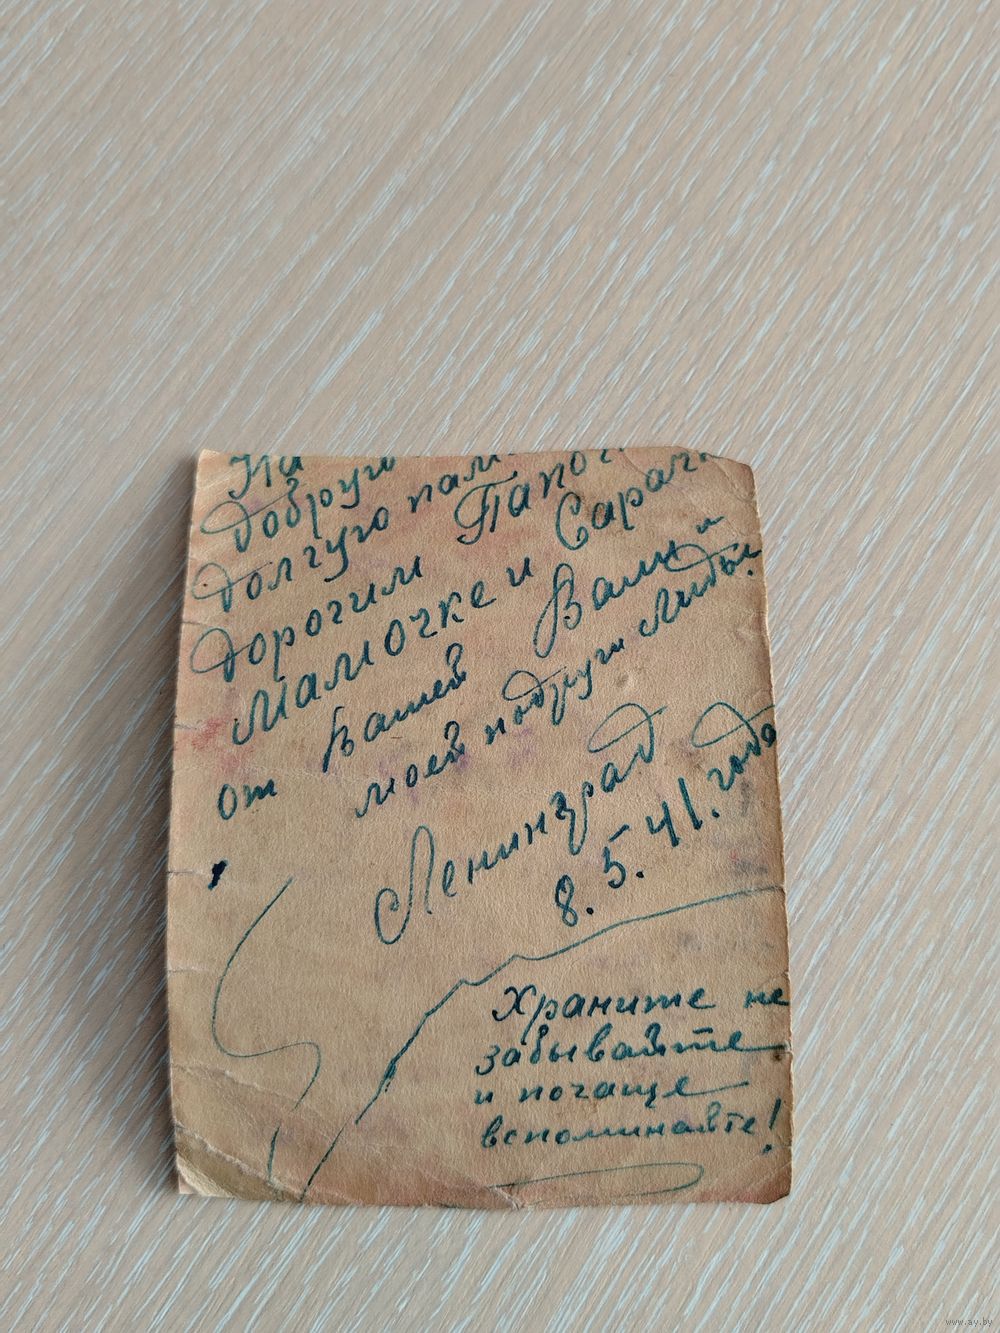 На
добрую
долгую пам
дорогим Папоч
Мамочке и Сарач
от Вашей Вали и
моей подруги Лиды.
Ленинград
8. 5. 41. года
Храните не
забывайте
и почаще
вспоминайте!
www.ay.by